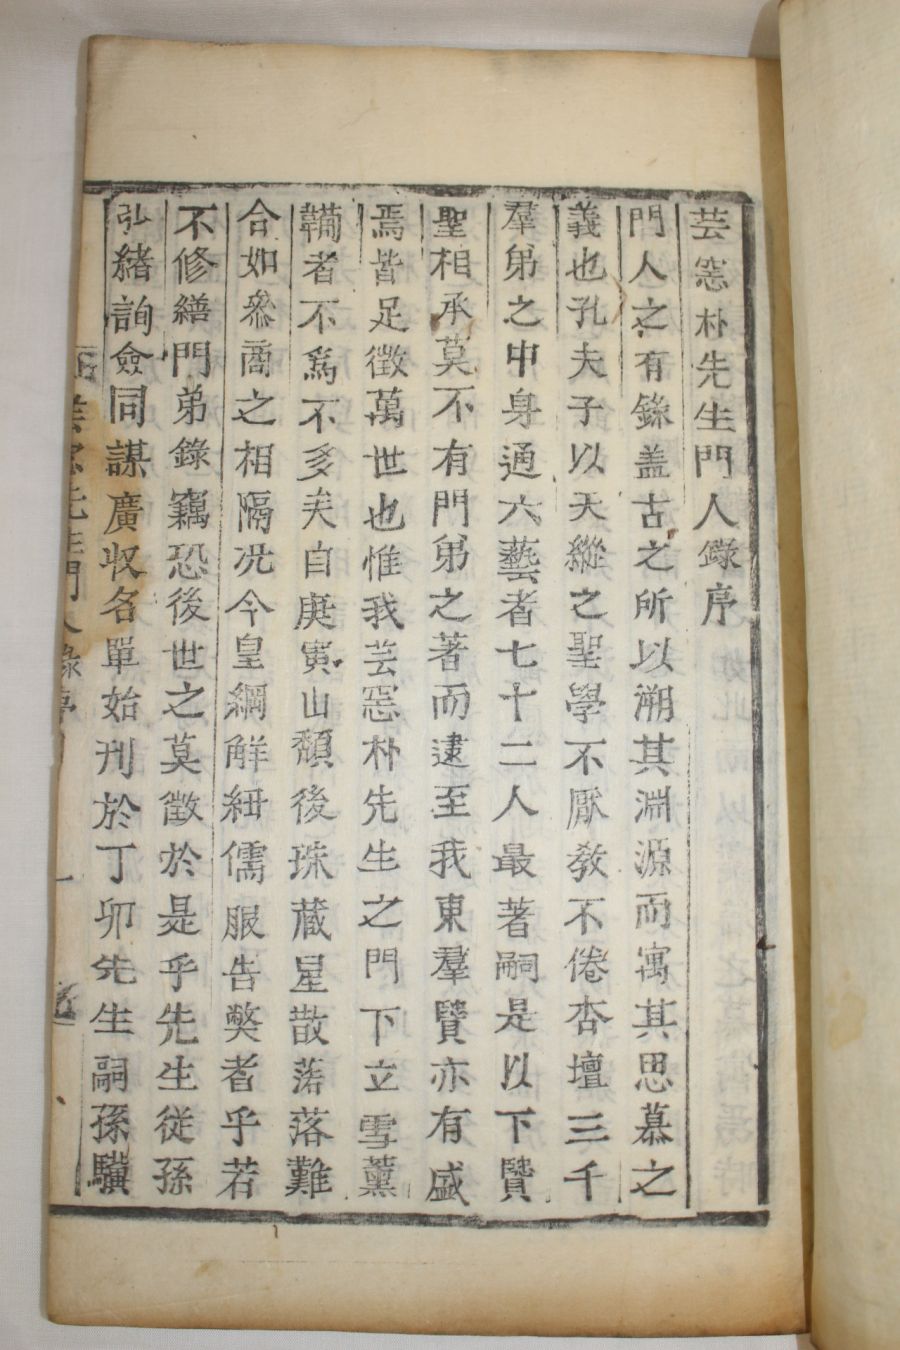 芸窓朴先生門人錄序
門人之有錄盖古之所以溯其淵源而寓其思慕之
義也孔夫子以天縱之聖學不厭敎不倦杏壇三千
羣弟之中身通六藝者七十二人最著嗣是以下賢
聖相承莫不有門弟之著而逮至我東羣賢亦有盛
焉皆足徵萬世也惟我芸窓朴先生之門下立雪薰
鞴者不爲不多矣自庚寅山頹後珠藏星散落落難
合如叅商之相隔况今皇綱解紐儒服告獘者乎若
不修繕門弟錄竊恐後世之莫徵於是乎先生從孫
弘緖詢僉同謀廣收名單始刊於丁卯先生嗣孫驥
芸窓先生門人錄序
一